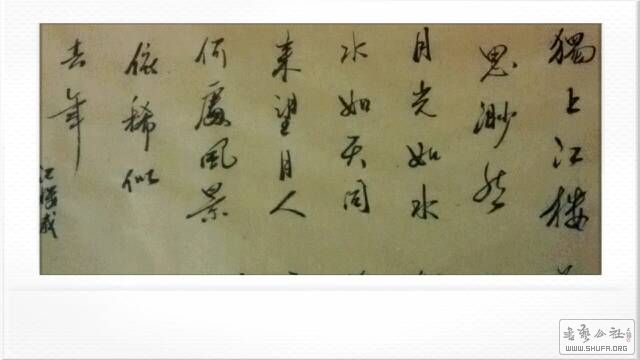 獨上江樓
思渺然
月光如水
水如天同
来望月人
何處風景
依稀似
去年
書藝公社
WWW.SHUFA.ORG